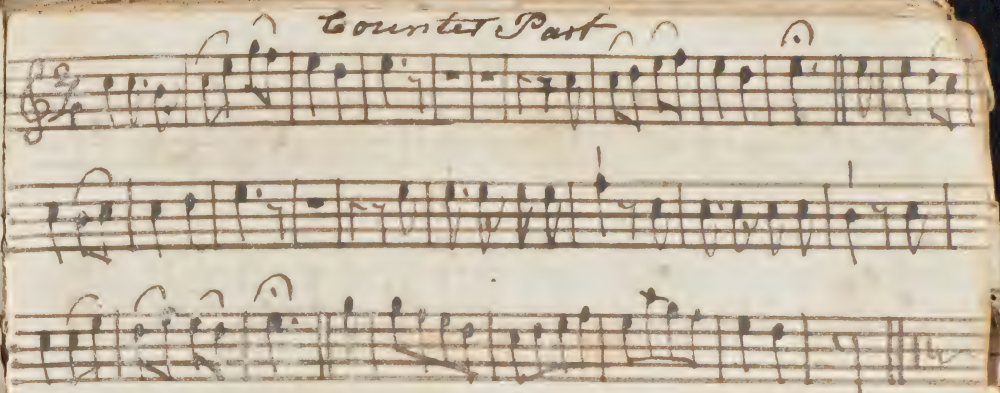 Counter Part